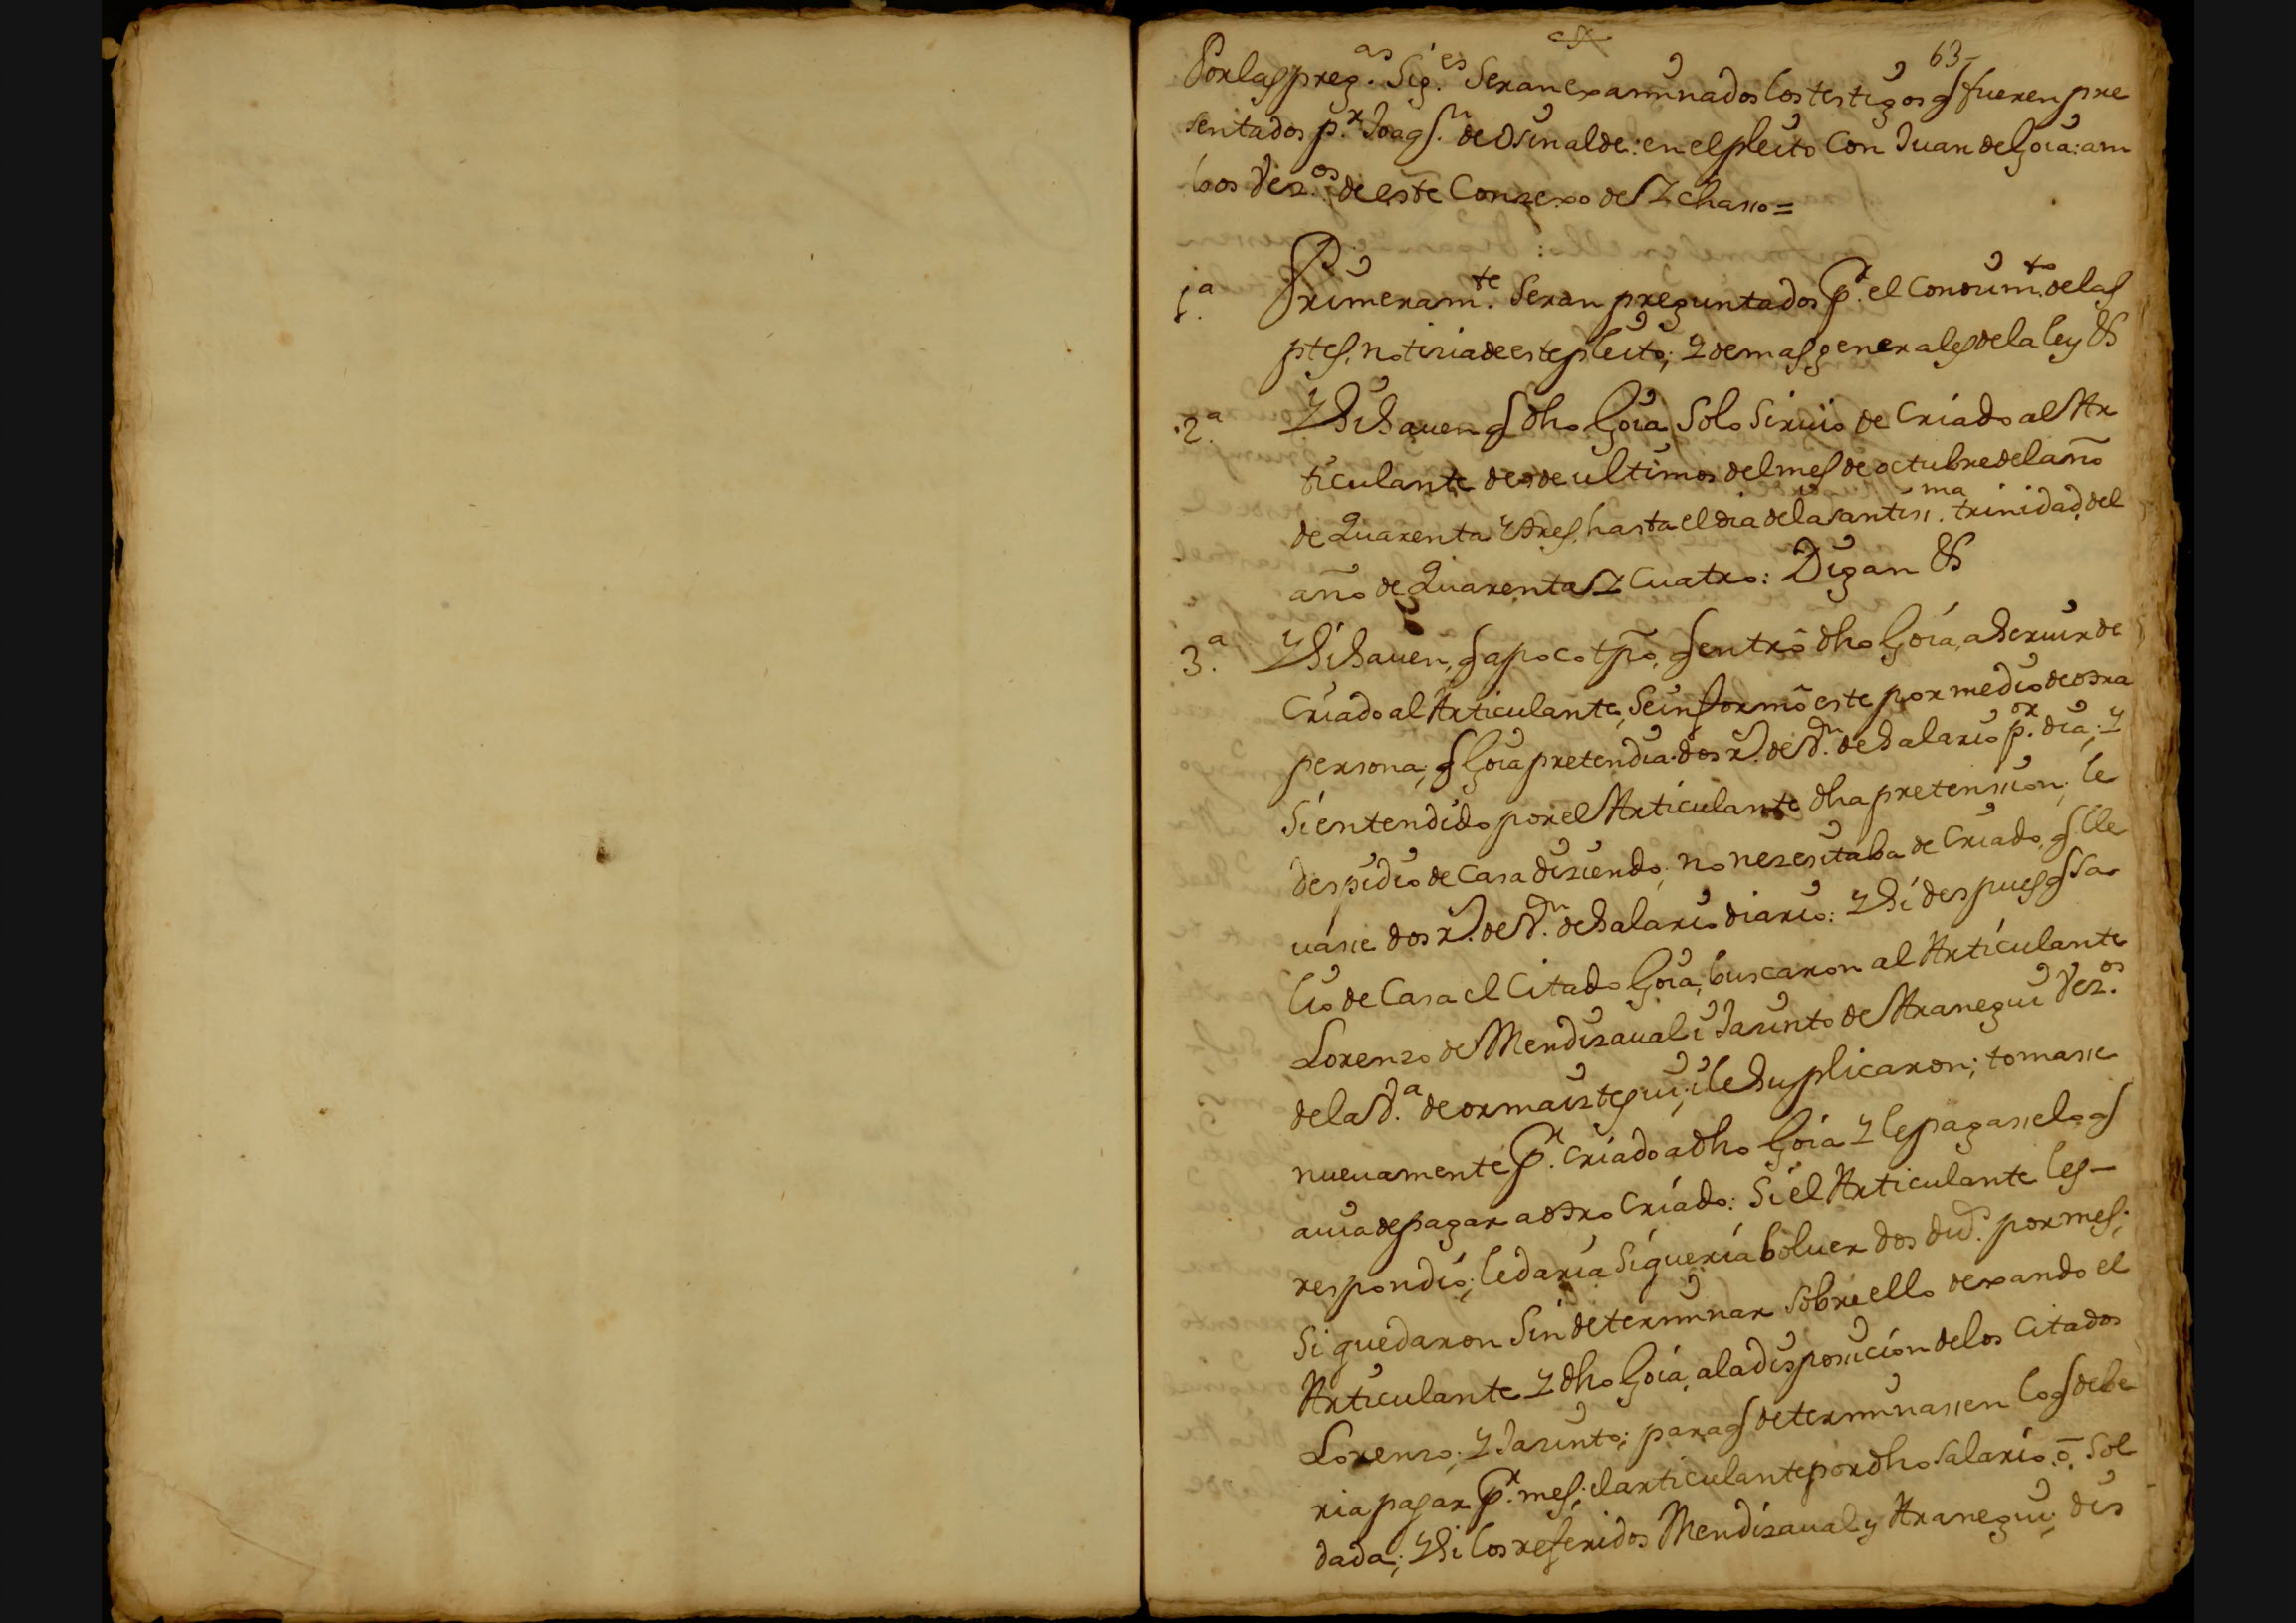 63
Por las preg.as Sig.es Seran examinados los testigos q fueren pre
sentados p.r Joaq.n de Osinalde: en el pleito Con Juan de Goia: am
bos Vez.os de este Conzexo de
1.a Primeram.te Seran preguntados p.r el Conozim.to de las
ptes, notizia de este pleito; y demas generales de la ley &
2.a Y Si Saven q dho Goia Solo Siruio de Criado al Ar
ticulante desde ultimos del mes de octubre del año
de Quarenta y tres, hasta el dia de la santiss.ma trinidad, del
año de Quarenta y Cuatro: Digan &
3.a Y Si Saven, q a poco tpo, q entrô dho Goia, a Seruir de
Criado al Articulante, Se informô este por medio de otra
persona; q Goia pretendia dos r.s de V.n de Salario p.or dia; y
Si entendido por el Articulante dha pretension; le
despidio de Casa diziendo; no nezesitaba de Criado, q lle
uásse dos r.s de V.n de Salario diario: Y Si despues q Sa
lio de Casa el Citado Goia, buscaron al Artículante
Lorenzo de Mendizaual i Jazinto de Aranegui Vez.os
de la V.a de ormaiztegui; i le Suplicaron; tomasse
nueuamente p.r Criado a dho Goia y le pagasse lo q
auia de pagar a otro Criado: Si el Articulante les
respondió; le daria Si queria boluer dos du.s por mes;
Si quedaron Sin determinar sobre ello dexando el
Articulante y dho Goia, a la disposición de los Citados
Lorenzo; y Jazinto; para q determinassen lo q debe
ria pagar p.r mes; el articulante por dho salario, ô, sol
dada; Y Si los referidos Mendizaual y Aranegui; dis